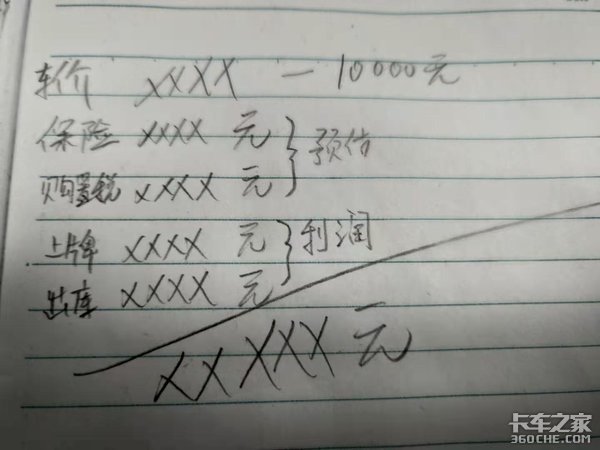 车价 XXXX — 10000元
保险 XXXX 元
预估
购置税 XXXX 元
上牌 XXXX 元
利润
出库 XXXX 元
XXXXX元
卡车之家
360CHE.COM